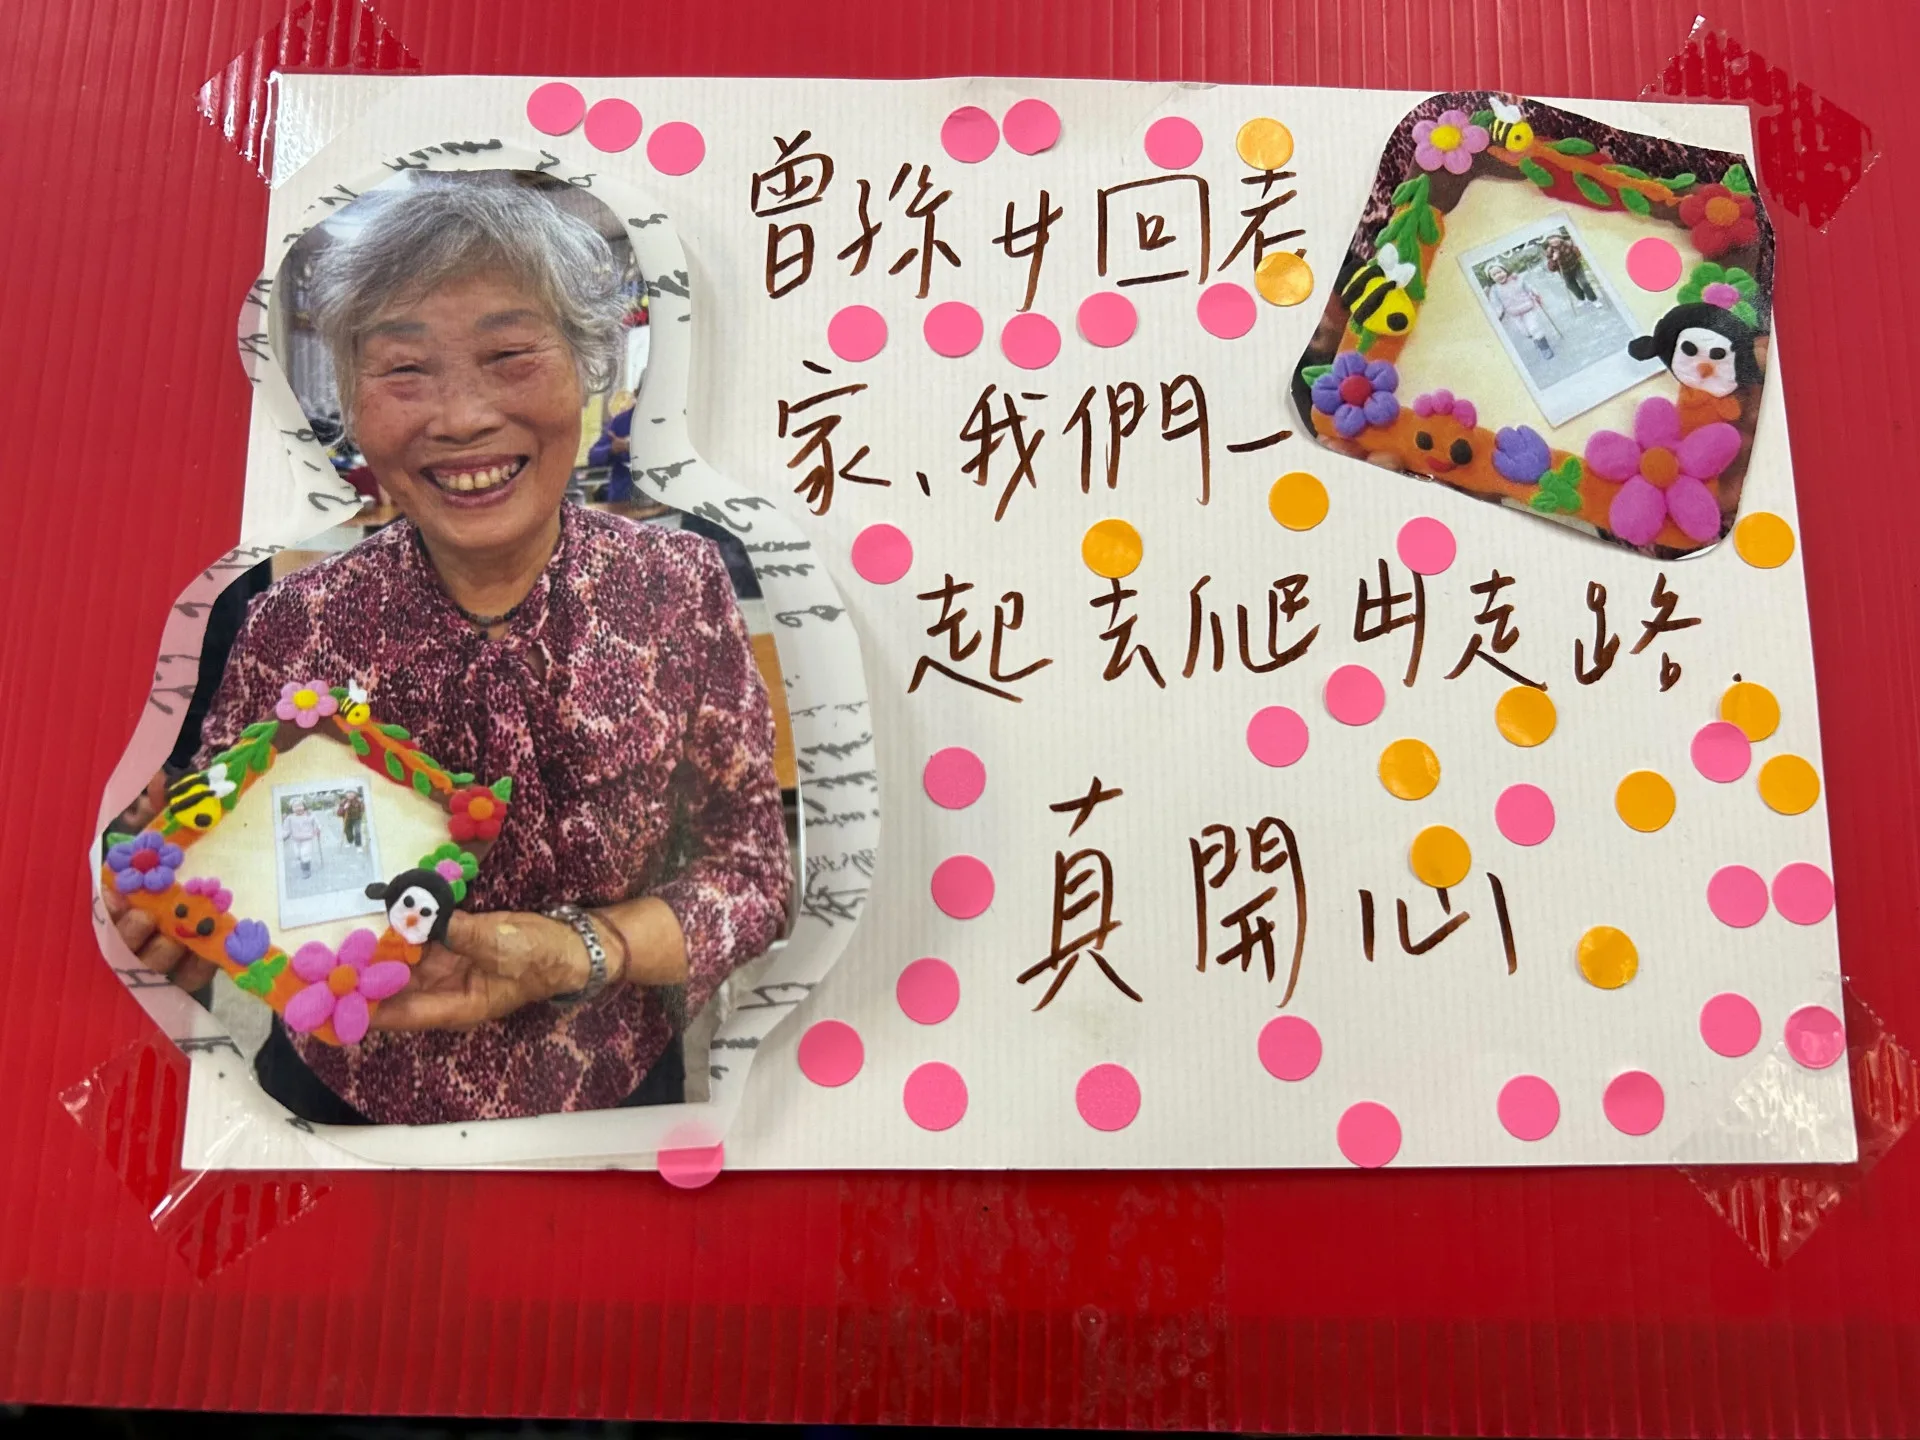 曾孫女回老
家、我們一
起去爬山走路.
真開心